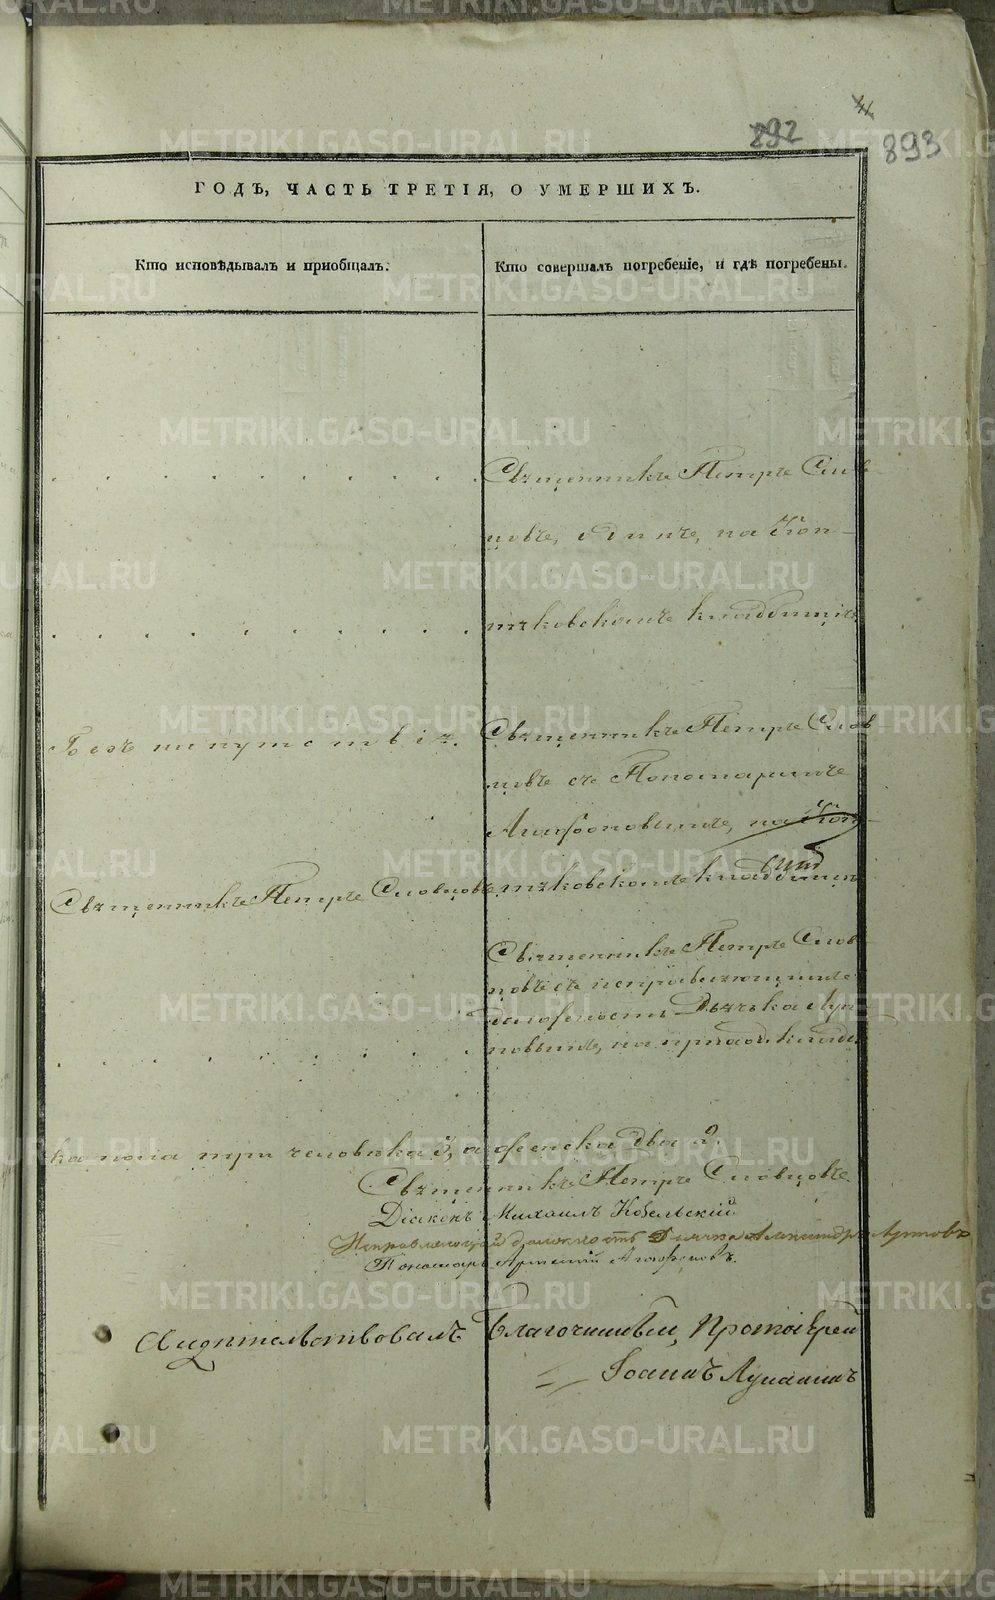 892
893
ГОДЪ, ЧАСТЬ ТРЕТІЯ, О УМЕРШИХЪ.
Кто исповѣдывалъ и пріобщалъ.
Кто совершалъ погребеніе, и гдѣ погребены.
Священникъ Петръ Слов
цовъ, одинъ, на Коп-
тяковскомъ кладбищѣ
Безъ напутствія.
Священникъ Петръ Слов
цовъ съ Пономаремъ
Агафоновымъ, на Коп-
тяковскомъ кладбищѣ
Священникъ Петръ Словцовъ
Священникъ Петръ Слов
цовъ съ исправляющимъ
должность Дьячка
новымъ, на приход. кладб
ка пола три человѣка 3, а женска два 2.
Священникъ Петръ Словцовъ.
Діаконъ Михаилъ Кобельскій
Исправляющій должность Дьячка Александръ
Пономарь Агафоновъ.
Свидѣтельствовалъ Благочинный, Протоіерей
Іоаннъ
METRIKI.GASO-URAL.RU